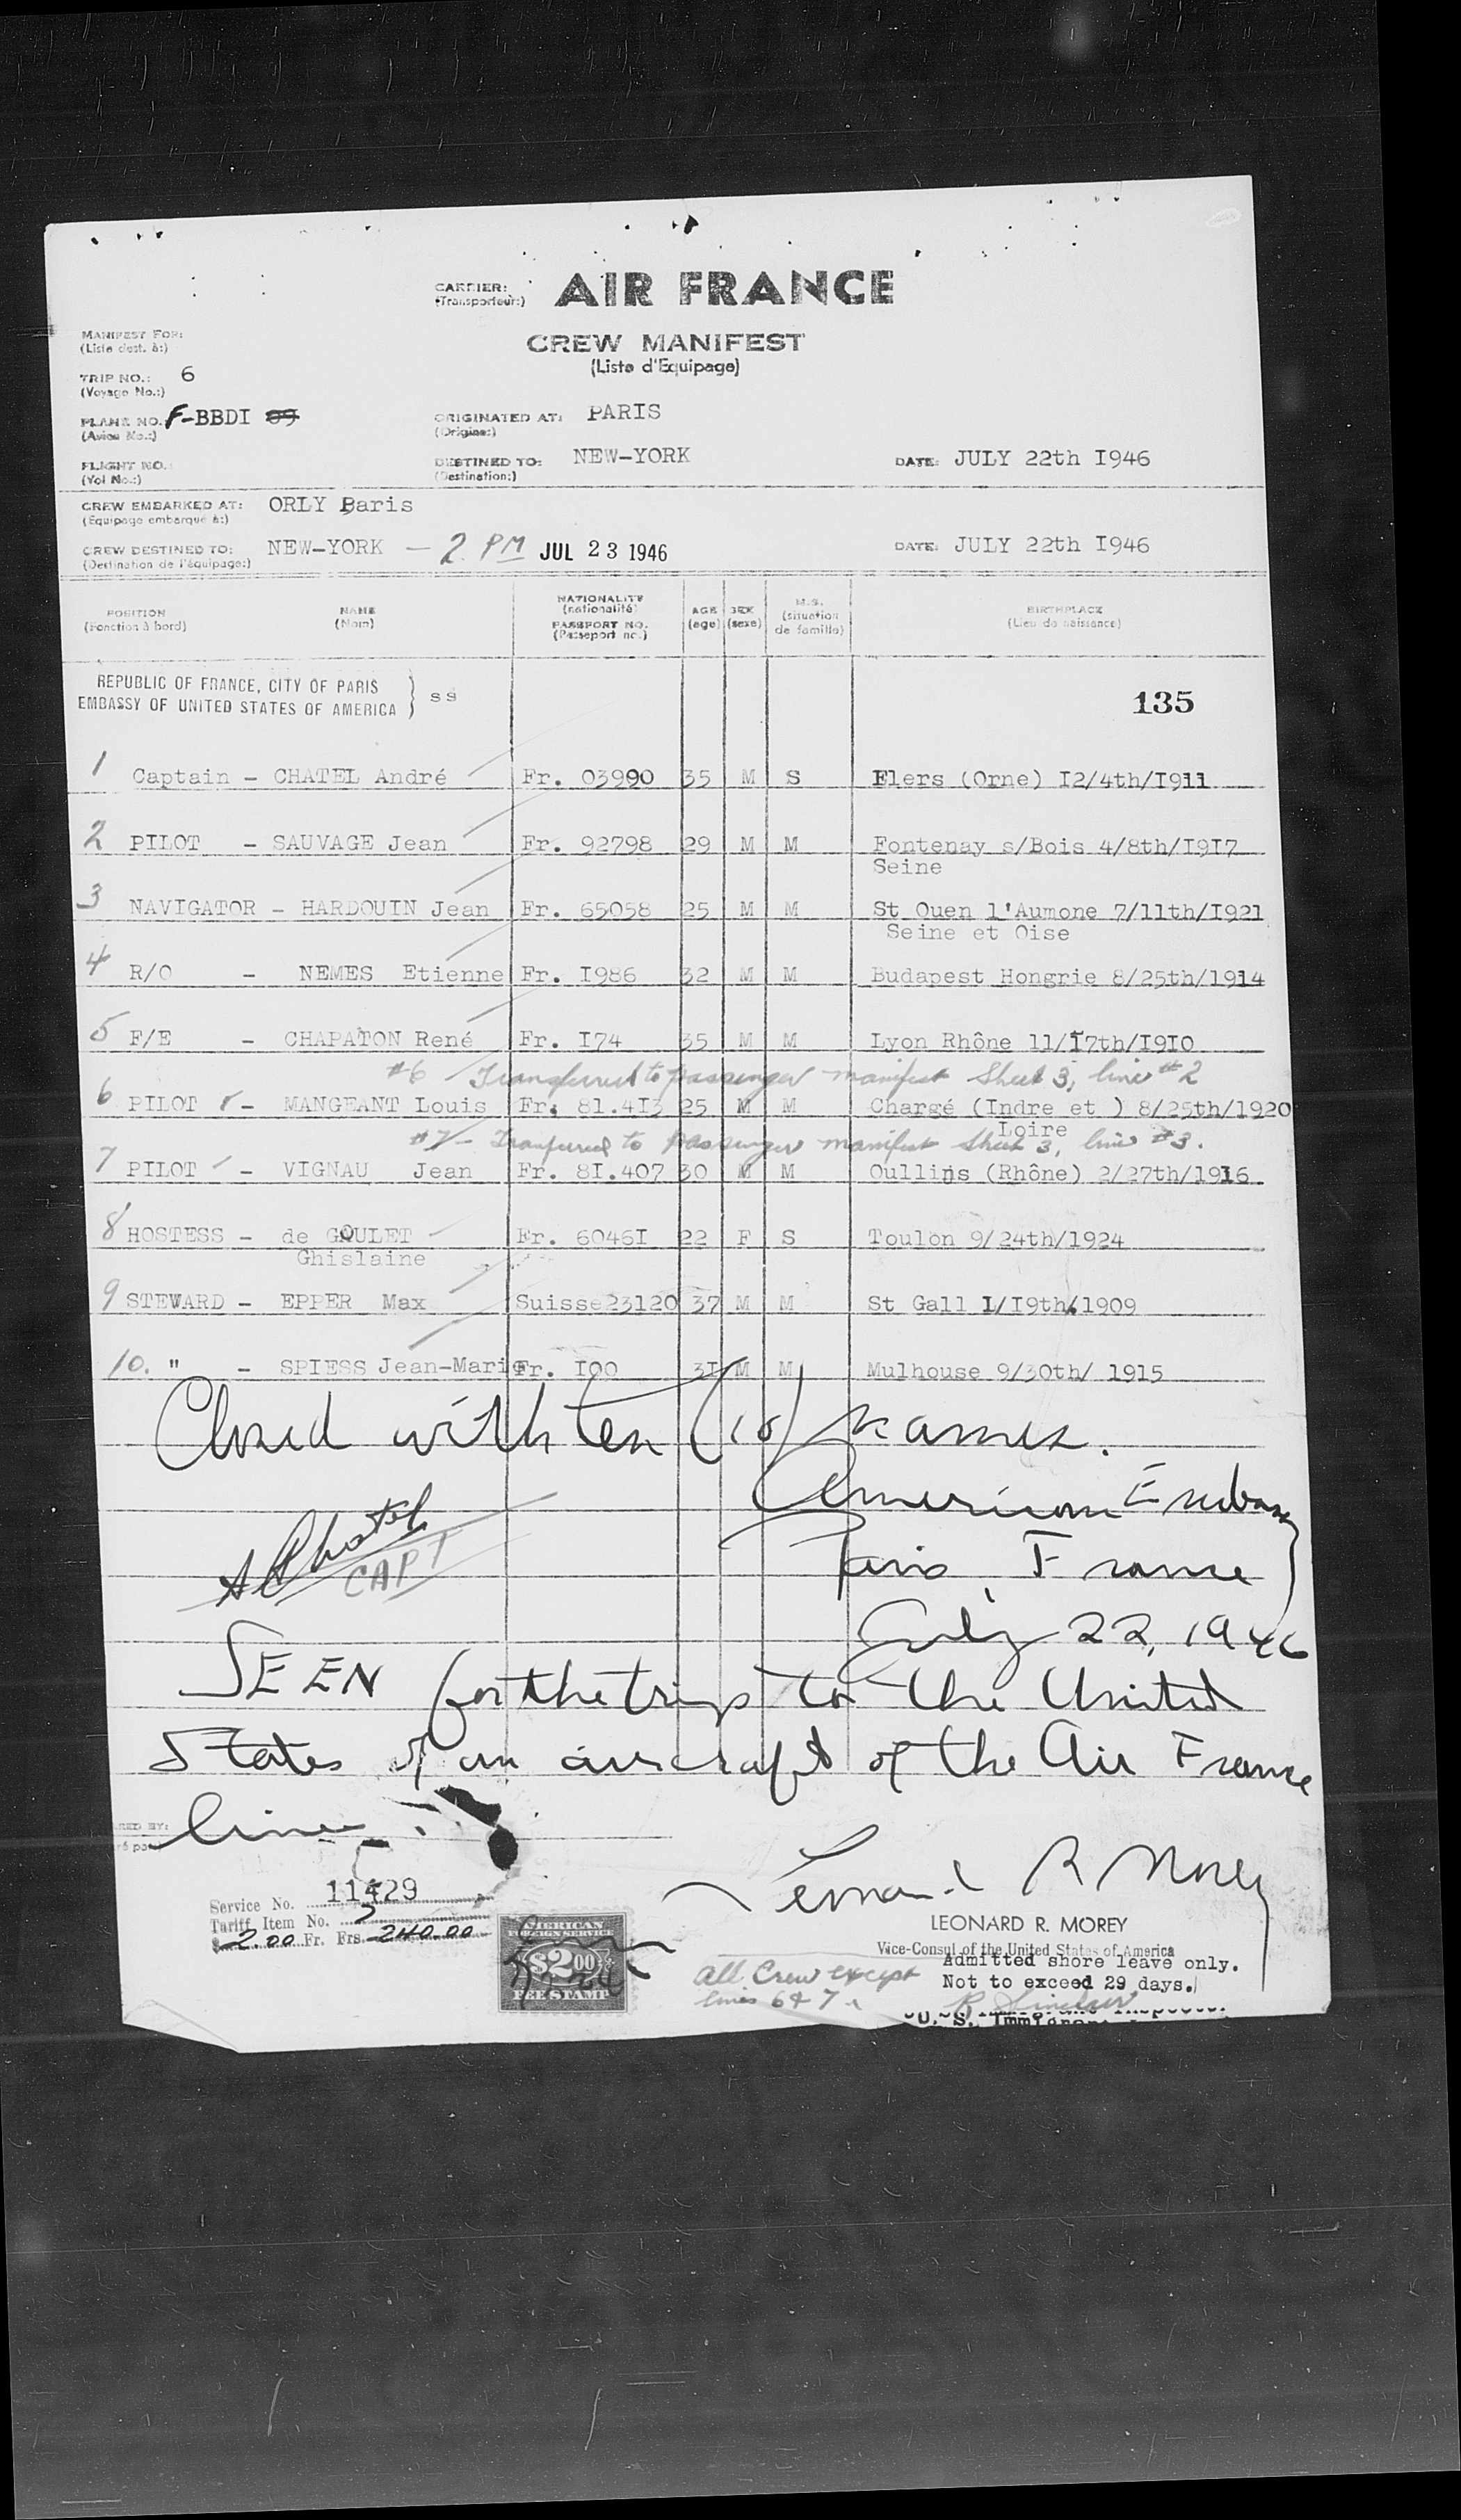 CARRIER: AIR FRANCE
(Transporteur:)
MANIFEST FOR:
(Liste dest. à:)
CREW MANIFEST
(Liste d'Equipage)
TRIP NO.: 6
(Voyage No.:)
PLANE NO. F-BBDI 09
(Avion No.:)
ORIGINATED AT: PARIS
(Origine:)
FLIGHT NO.:
(Vol No.:)
DESTINED TO: NEW-YORK
(Destination:)
DATE: JULY 22th I946
CREW EMBARKED AT: ORLY Paris
(Equipage embarque à:)
CREW DESTINED TO: NEW-YORK — 2 PM JUL 23 1946
(Destination de l'équipage:)
DATE: JULY 22th I946
POSITION NAME NATIONALITY AGE SEX M.S. BIRTHPLACE
(Fonction à bord) (Nom) (nationalité) (age) (sexe) (situation de famille) (Lieu de naissance)
PASSPORT NO.
(Passeport no.)
REPUBLIC OF FRANCE, CITY OF PARIS
EMBASSY OF UNITED STATES OF AMERICA } ss
135
1 Captain - CHATEL André Fr. 03990 35 M S Flers (Orne) I2/4th/I911
2 PILOT - SAUVAGE Jean Fr. 92798 29 M M Fontenay s/Bois 4/8th/I9I7
Seine
3 NAVIGATOR - HARDOUIN Jean Fr. 65058 25 M M St Ouen l'Aumone 7/11th/I921
Seine et Oise
4 R/O - NEMES Etienne Fr. I986 32 M M Budapest Hongrie 8/25th/1914
5 F/E - CHAPATON René Fr. I74 35 M M Lyon Rhône 11/I7th/I9IO
#6 Transferred to passenger manifest Sheet 3, line #2
6 PILOT - MANGEANT Louis Fr. 81.4I3 25 M M Chargé (Indre et ) 8/25th/1920
Loire
#7 - Transferred to passenger manifest Sheet 3, line #3.
7 PILOT - VIGNAU Jean Fr. 8I.407 30 M M Oullins (Rhône) 2/27th/1916
8 HOSTESS - de GOULET Fr. 6046I 22 F S Toulon 9/24th/1924
Ghislaine
9 STEWARD - EPPER Max Suisse 23120 37 M M St Gall I/I9th/1909
10. " - SPIESS Jean-Marie Fr. IOO 3I M M Mulhouse 9/30th/ 1915
Closed with ten (10) names.
American Embassy
Paris, France
July 22, 1946
A Chatel
CAPT
SEEN for the trip to the United
States of an aircraft of the Air France
line.
Service No. 11429
Tariff Item No. 7
$ 2.00 Fr. Frs. 240.00
AMERICAN
FOREIGN SERVICE
$2.00
FEE STAMP
Leonard R Morey
LEONARD R. MOREY
Vice-Consul of the United States of America
All Crew except
lines 6 & 7
Admitted shore leave only.
Not to exceed 29 days.
U. S. Immigrant Inspector